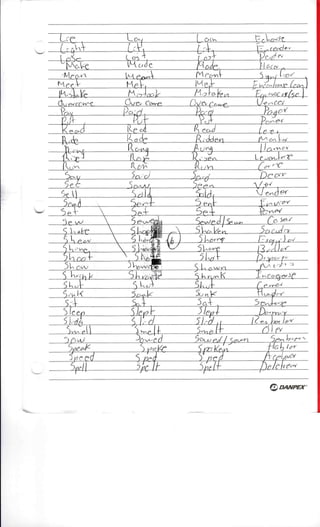 Lie Lay Lain Echarse
Light Lit Lit Encender
Lose Lost Lost Perder
Make Made Made Hacer
Mean Meant Meant
Meet Met Met
Mistake Mistook Mistaken
Overcome Overcame Overcome Vencer
Pay Paid Paid Pagar
Put Put Put Poner
Read Read Read Leer
Ride Rode Ridden Montar
Ring Rang Rung Llamar
Rise Rose Risen
Run Ran Run
Say Said Said Decir
See Saw Seen Ver
Sell Sold Sold Vender
Send Sent Sent Enviar
Set Set Set Poner
Sew Sewed Sewed/Sewn Coser
Shake Shaken Sacudir
Shear Shore Esquilar
Shine Shone Brillar
Shoot Shot Disparar
Show Showed Shown
Shrink Shrank Shrunk Encogerse
Shut Shut Shut Cerrar
Sink Sank Sunk Hundir
Sit Sat Sat Sentarse
Sleep Slept Slept Dormir
Slide Slid Slid Resbalar
Smell Smelt Smelt Oler
Sow Sowed Sowed/Sown
Speak Spoke Spoken Hablar
Speed Sped Sped Acelerar
Spell Spelt Spelt Deletrear
DANPEX